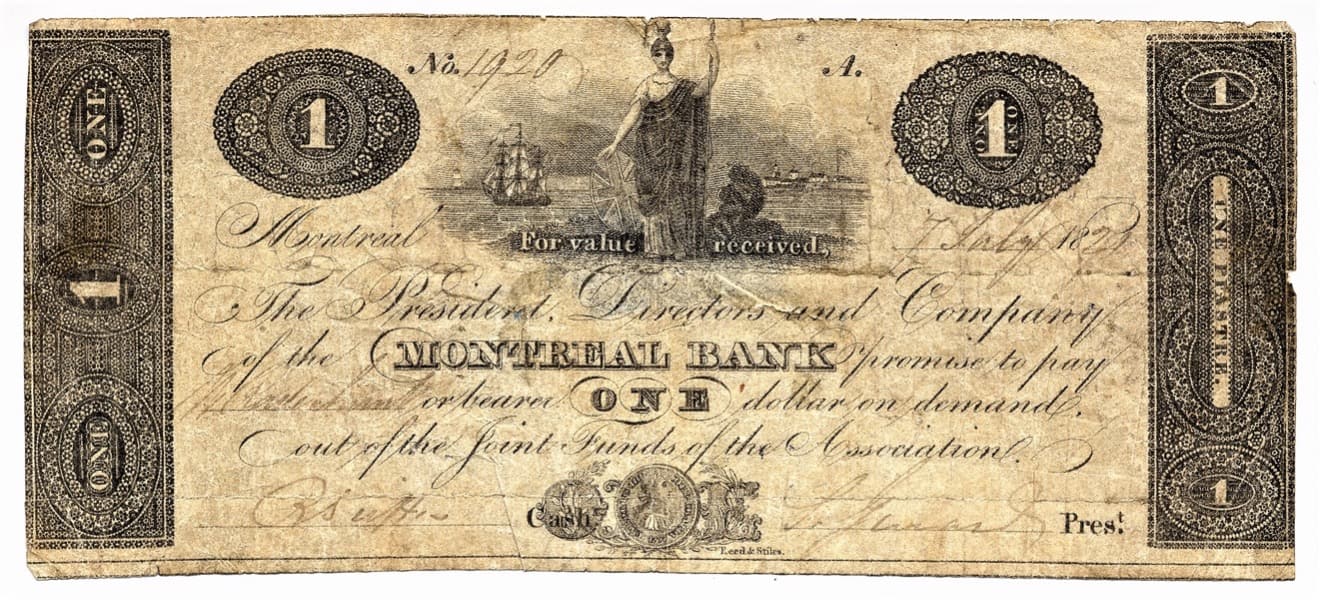 ONE
1
ONE
1
No. 1920
A.
1
ONE
ONE
Montreal
For value received,
7 July 182
The President, Directors and Company
of the MONTREAL BANK promise to pay
or bearer ONE dollar on demand,
out of the Joint Funds of the Association.
Cashr.
Prest.
Reed & Stiles.
1
UNE PIASTRE.
1